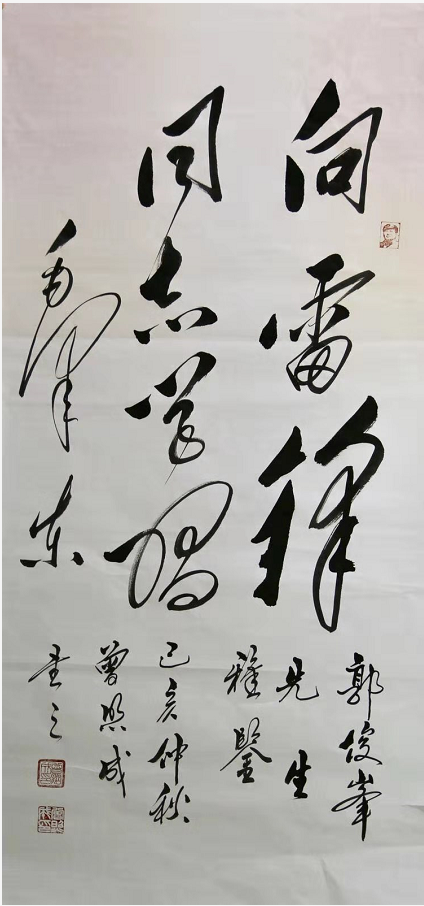 向雷锋
同志学习
毛泽东
郭俊峯
先生
雅鑒
己亥仲秋
曾照成
书之